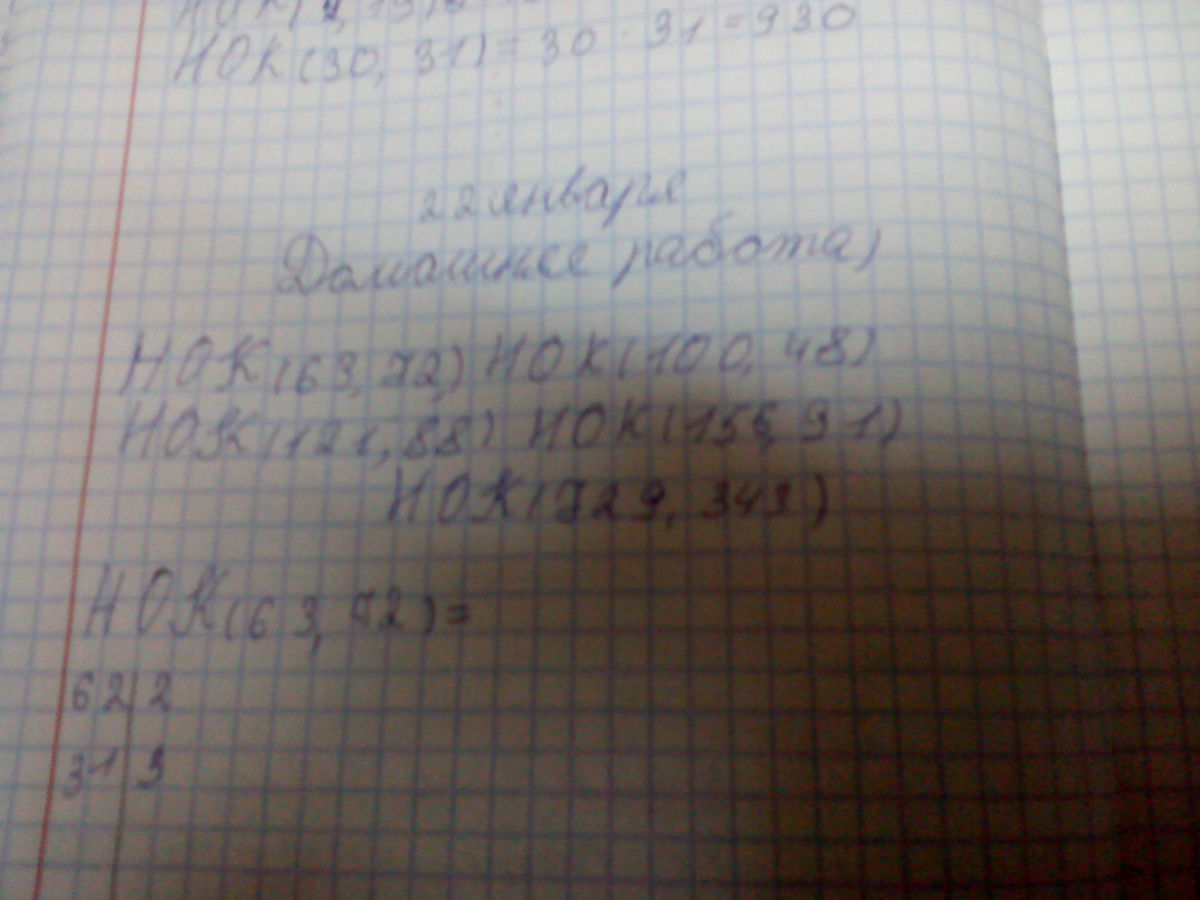 НОК(30, 31) = 30 · 31 = 930
22 января
Домашнее работа
НОК(63, 72) НОК(100, 48)
НОК(121, 88) НОК(156, 91)
НОК(729, 343)
НОК(63, 72) =
62 2
31 3